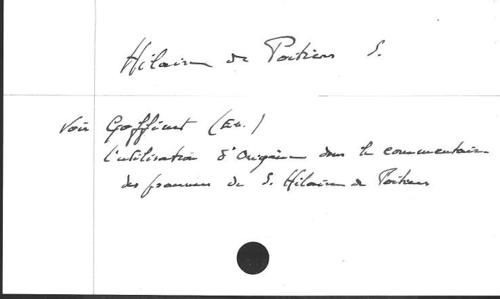 Hilaire de Poitiers S.
Voir Goffinet (Em.)
L'utilisation d'Origène dans le commentaire
des psaumes de S. Hilaire de Poitiers